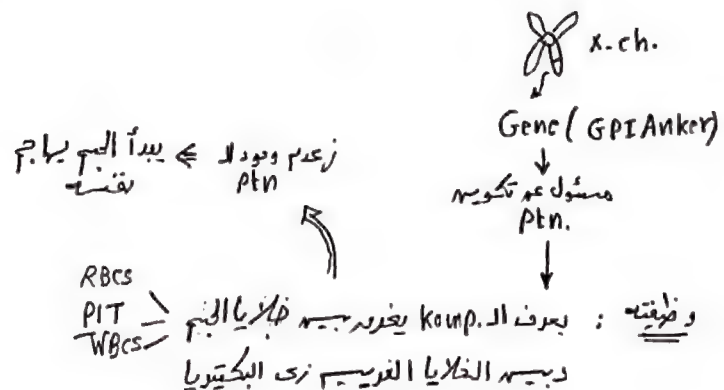 x.ch.
Gene ( GPI Anker)
مسئول عن تكوين
Ptn.
وظيفته : يعرف الـ komp. يفرق بين خلايا الجسم
RBCs
PlT
WBCs
وبين الخلايا الغريبة زى البكتيريا
عدم وجود الـ ptn => يبدأ الجسم يهاجم
نفسه